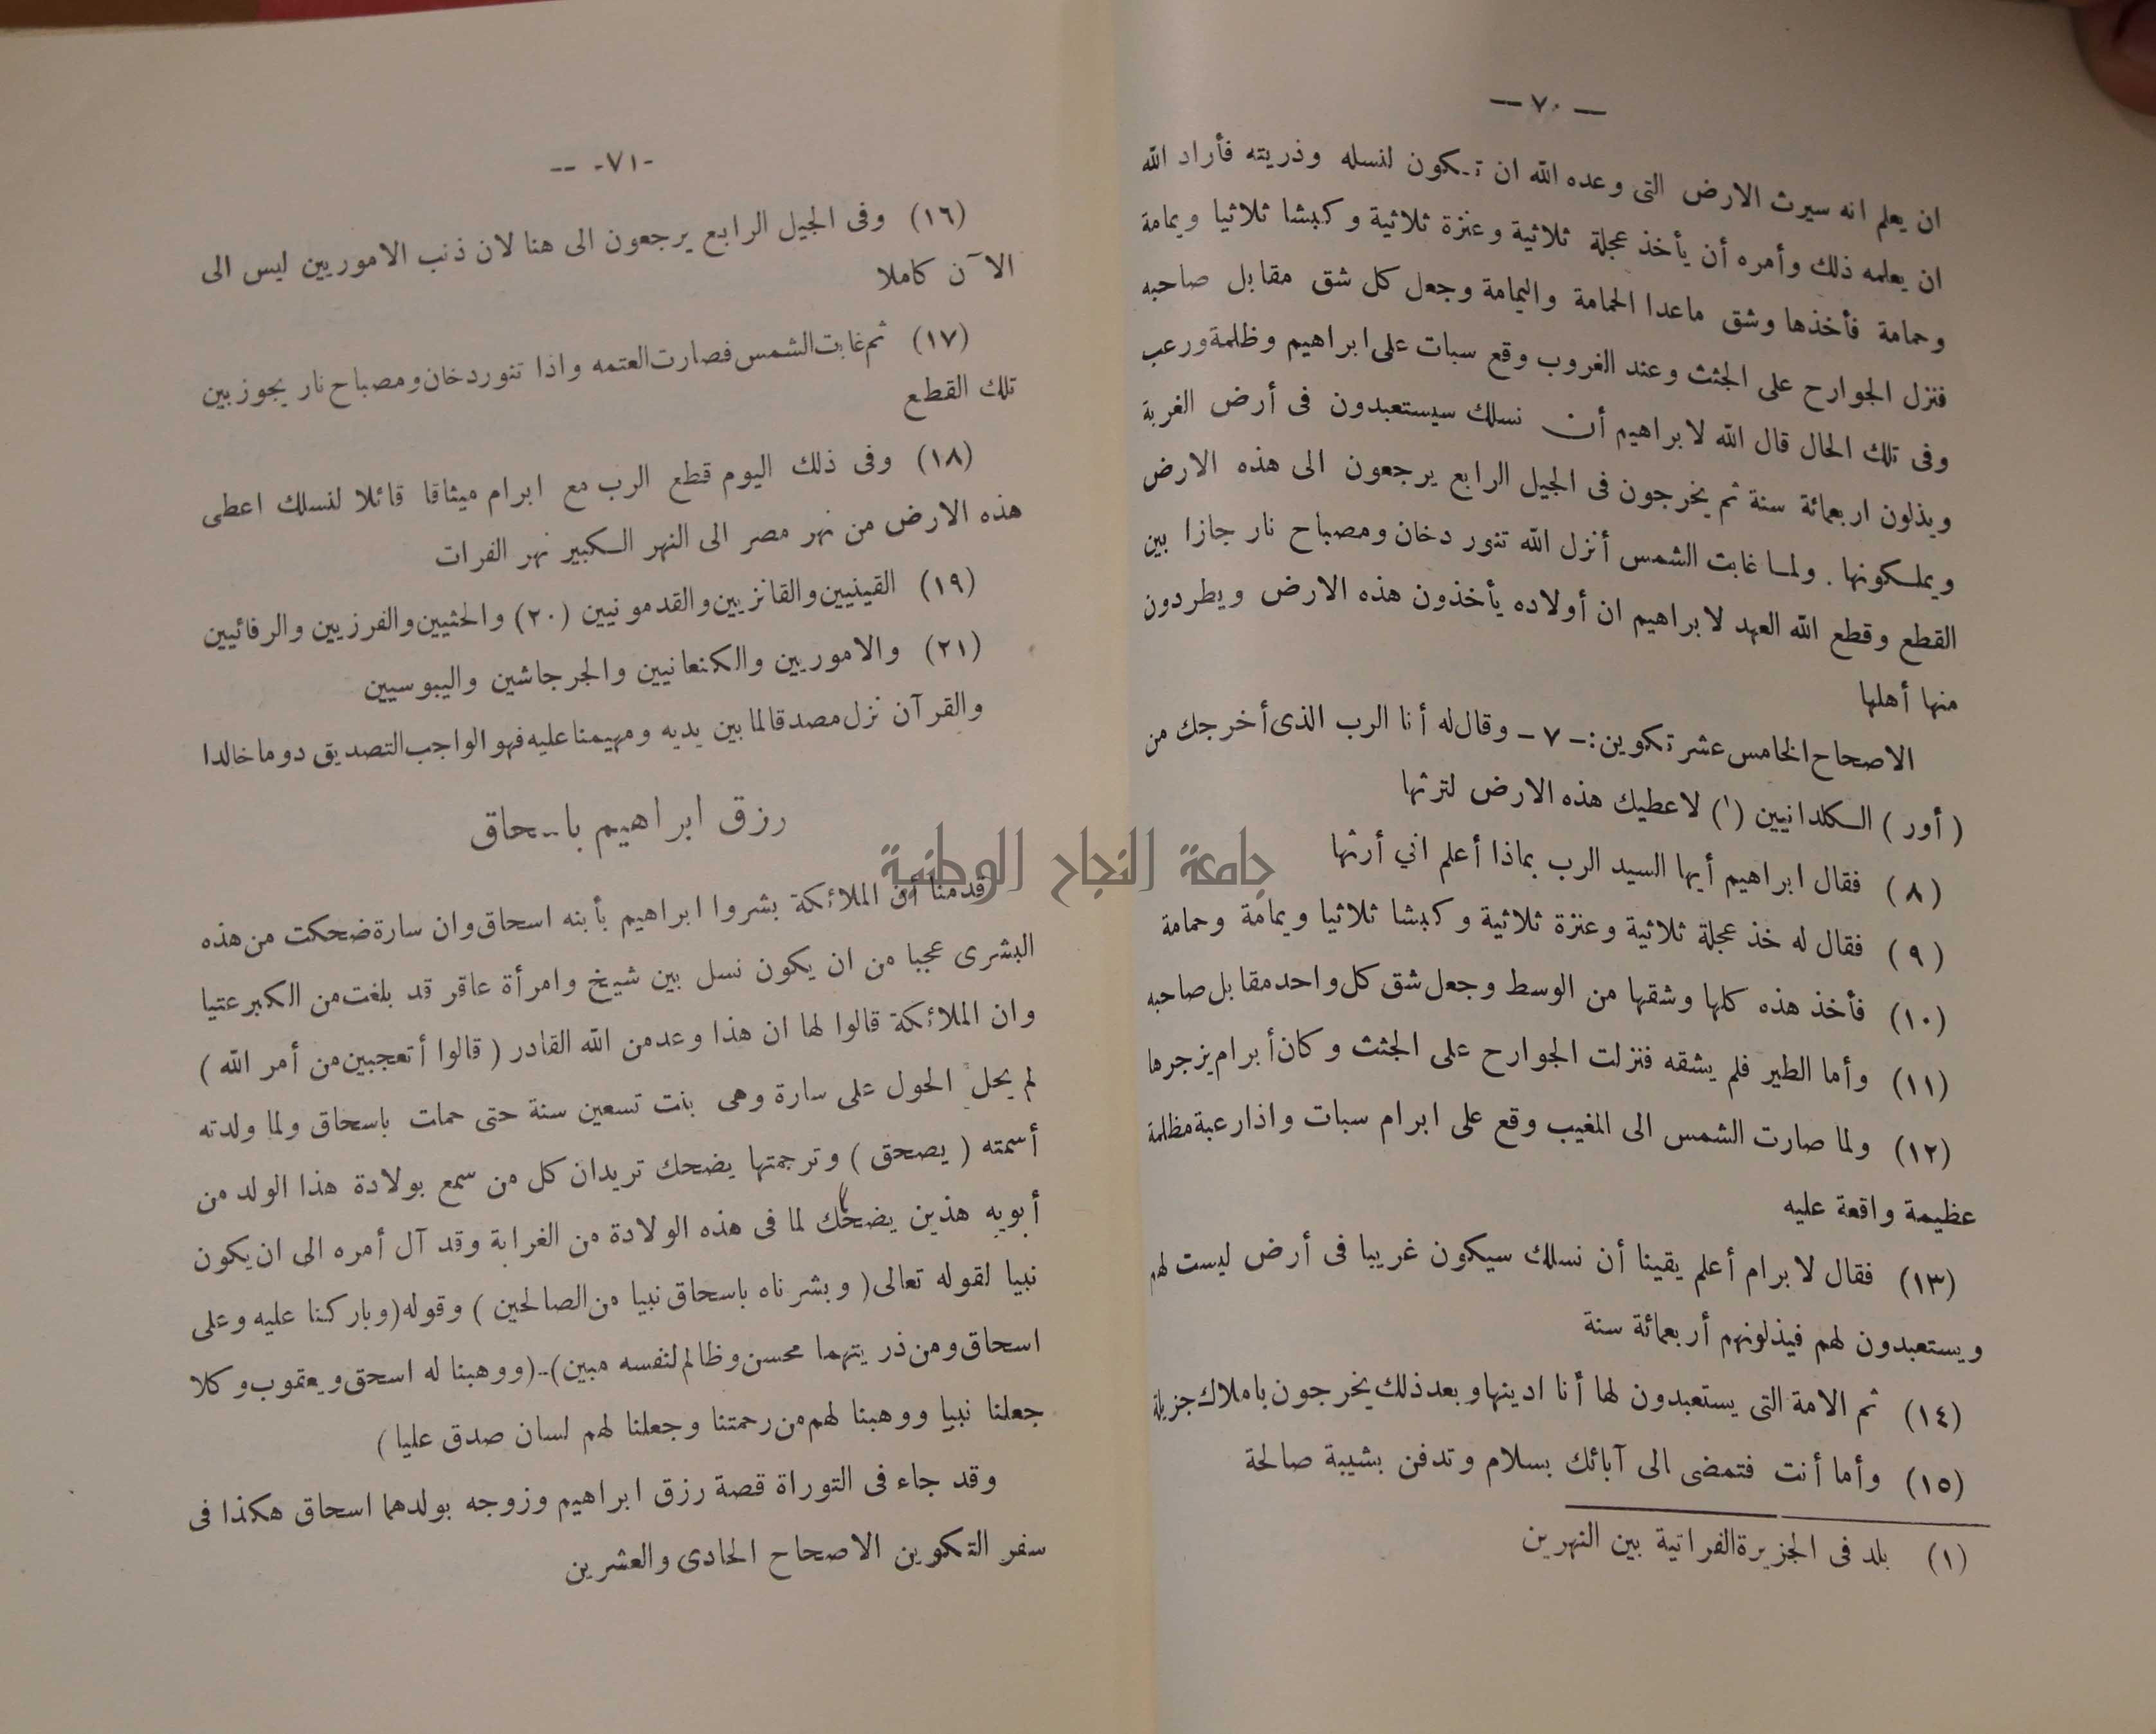 — ٧٠ —
ان يعلم انه سيرث الارض التى وعده الله ان تكون لنسله وذريته فأراد الله
ان يعلمه ذلك وأمره أن يأخذ عجلة ثلاثية وعنزة ثلاثية وكبشا ثلاثيا ويمامة
وحمامة فأخذها وشق ماعدا الحمامة واليمامة وجعل كل شق مقابل صاحبه
فنزل الجوارح على الجثث وعند الغروب وقع سبات على ابراهيم وظلمة ورعب
وفى تلك الحال قال الله لابراهيم أن نسلك سيستعبدون فى أرض الغربة
ويذلون اربعمائة سنة ثم يخرجون فى الجيل الرابع يرجعون الى هذه الارض
ويملكونها . ولما غابت الشمس أنزل الله تنور دخان ومصباح نار جازا بين
القطع وقطع الله العهد لابراهيم ان أولاده يأخذون هذه الارض ويطردون
منها أهلها
الاصحاح الخامس عشر تكوين :ـ ٧ ـ وقال له أنا الرب الذى أخرجك من
( أور ) الكلدانيين (١) لاعطيك هذه الارض لترثها
(٨) فقال ابراهيم أيها السيد الرب بماذا أعلم اني أرثها
(٩) فقال له خذ عجلة ثلاثية وعنزة ثلاثية وكبشا ثلاثيا ويمامة وحمامة
(١٠) فأخذ هذه كلها وشقها من الوسط وجعل شق كل واحد مقابل صاحبه
(١١) وأما الطير فلم يشقه فنزلت الجوارح على الجثث وكان أبرام يزجرها
(١٢) ولما صارت الشمس الى المغيب وقع على ابرام سبات واذا رعبة مظلمة
عظيمة واقعة عليه
(١٣) فقال لابرام أعلم يقينا أن نسلك سيكون غريبا فى أرض ليست لهم
ويستعبدون لهم فيذلونهم أربعمائة سنة
(١٤) ثم الامة التى يستعبدون لها أنا ادينها وبعد ذلك يخرجون باملاك جزيلة
(١٥) وأما أنت فتمضى الى آبائك بسلام وتدفن بشيبة صالحة
(١) بلد فى الجزيرة الفراتية بين النهرين
-٧١- --
(١٦) وفى الجيل الرابع يرجعون الى هنا لان ذنب الاموريين ليس الى
الآن كاملا
(١٧) ثم غابت الشمس فصارت العتمه واذا تنور دخان ومصباح نار يجوز بين
تلك القطع
(١٨) وفى ذلك اليوم قطع الرب مع ابرام ميثاقا قائلا لنسلك اعطى
هذه الارض من نهر مصر الى النهر الكبير نهر الفرات
(١٩) القينيين والقانزيين والقدمونيين (٢٠) والحثيين والفرزيين والرفائيين
(٢١) والاموريين والكنعانيين والجرجاشين واليبوسيين
والقرآن نزل مصدقا لما بين يديه ومهيمنا عليه فهو الواجب التصديق دوما خالدا
رزق ابراهيم باسحاق
قدمنا أن الملائكة بشروا ابراهيم بأبنه اسحاق وان سارة ضحكت من هذه
البشرى عجبا من ان يكون نسل بين شيخ وامرأة عاقر قد بلغت من الكبر عتيا
وان الملائكة قالوا لها ان هذا وعد من الله القادر ( قالوا أتعجبين من أمر الله )
لم يحل الحول على سارة وهى بنت تسعين سنة حتى حملت باسحاق ولما ولدته
أسمته ( يصحق ) وترجمتها يضحك تريد ان كل من سمع بولادة هذا الولد من
أبويه هذين يضحك لما فى هذه الولادة من الغرابة وقد آل أمره الى ان يكون
نبيا لقوله تعالى ( وبشرناه باسحاق نبيا من الصالحين ) وقوله (وباركنا عليه وعلى
اسحاق ومن ذريتهما محسن وظالم لنفسه مبين)ـ (ووهبنا له اسحق ويعقوب وكلا
جعلنا نبيا ووهبنا لهم من رحمتنا وجعلنا لهم لسان صدق عليا )
وقد جاء فى التوراة قصة رزق ابراهيم وزوجه بولدهما اسحاق هكذا فى
سفر التكوين الاصحاح الحادى والعشرين
جامعة النجاح الوطنية